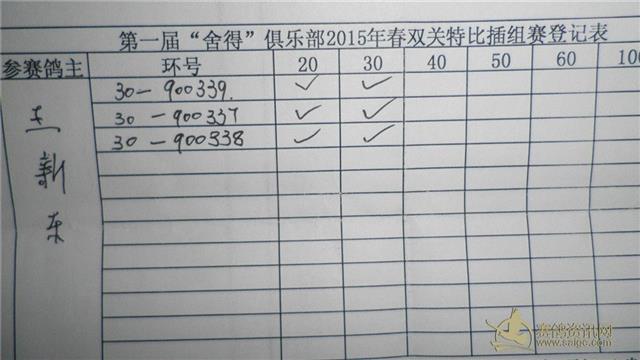 第一届“舍得”俱乐部2015年春双关特比插组赛登记表
参赛鸽主 环号 20 30 40 50 60 100
王新东
30-900339. ✓ ✓
30-900337 ✓ ✓
30-900338 ✓ ✓
赛鸽资讯网
www.saige.com